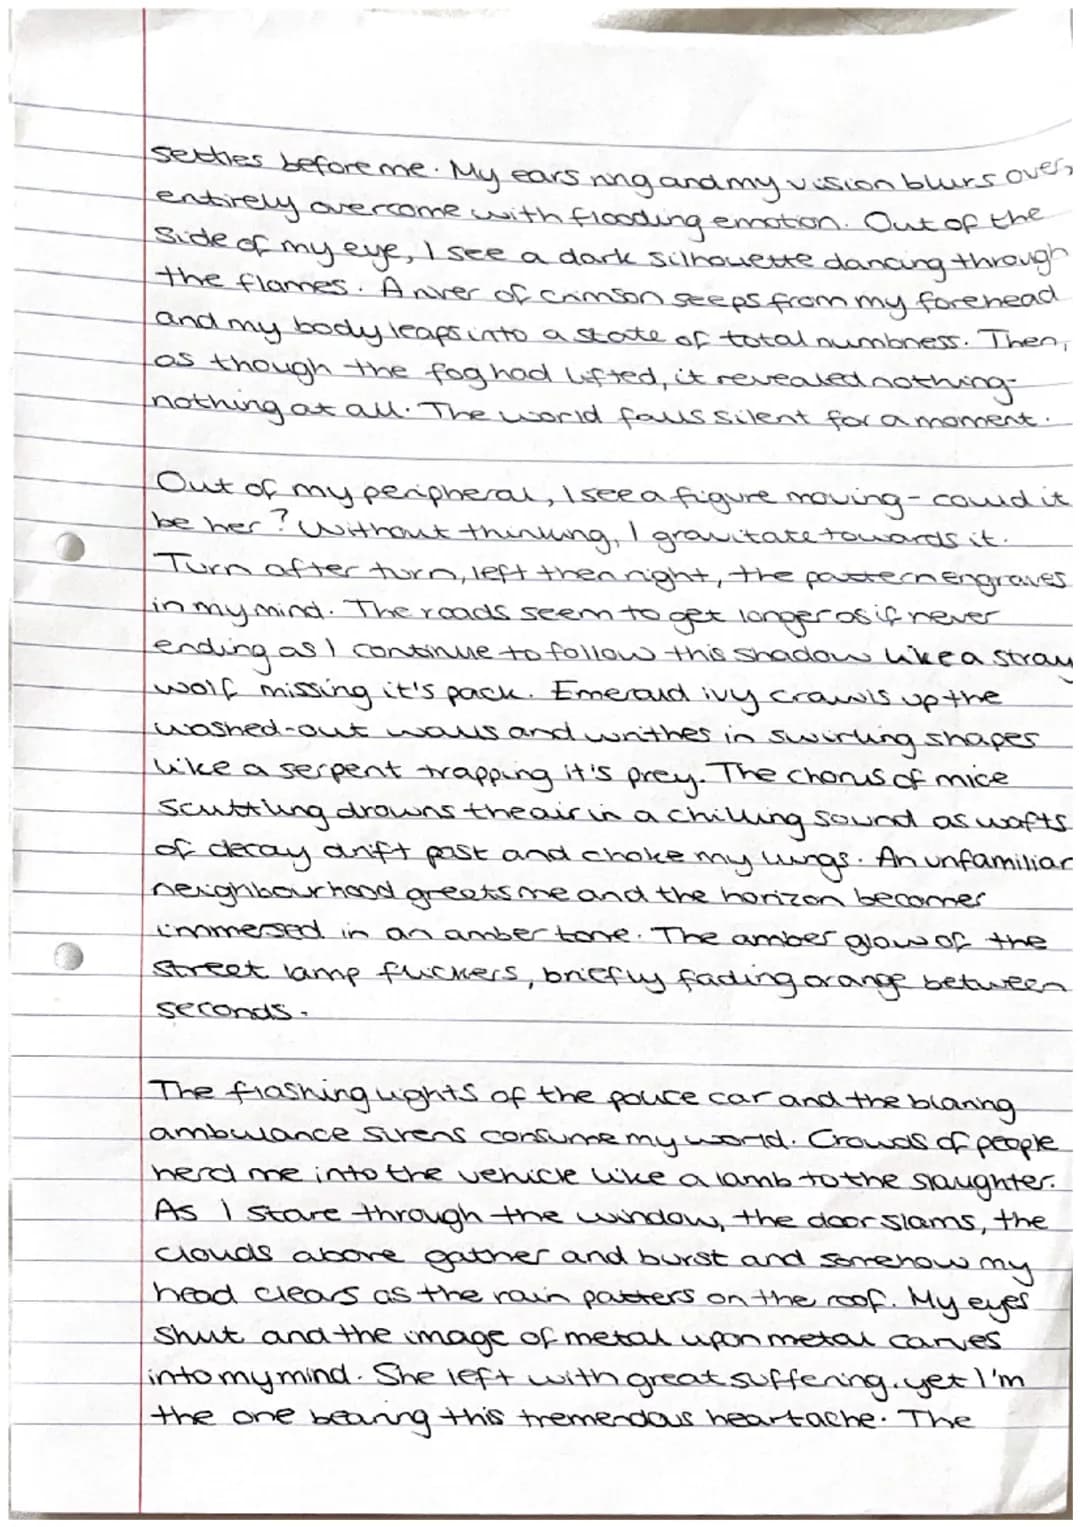 settles before me. My ears ring and my vision blurs over,
entirely overcome with flooding emotion. Out of the
side of my eye, I see a dark silhouette dancing through
the flames. A river of crimson seeps from my forehead
and my body leaps into a state of total numbness. Then,
as though the fog had lifted, it revealed nothing-
nothing at all. The world falls silent for a moment.
Out of my peripheral, I see a figure moving - could it
be her? Without thinking, I gravitate towards it.
Turn after turn, left then right, the pattern engraves
in my mind. The roads seem to get longer as if never
ending as I continue to follow this shadow like a stray
wolf missing it's pack. Emerald ivy crawls up the
washed-out walls and writhes in swirling shapes
like a serpent trapping it's prey. The chorus of mice
scuttling drowns the air in a chilling sound as wafts
of decay drift past and choke my lungs. An unfamiliar
neighbourhood greets me and the horizon becomes
immersed in an amber tone. The amber glow of the
street lamp flickers, briefly fading orange between
seconds.
The flashing lights of the police car and the blaring
ambulance sirens consume my world. Crowds of people
herd me into the vehicle like a lamb to the slaughter.
As I stare through the window, the door slams, the
clouds above gather and burst and somehow my
head clears as the rain patters on the roof. My eyes
shut and the image of metal upon metal carves
into my mind. She left with great suffering, yet I'm
the one bearing this tremendous heartache. The